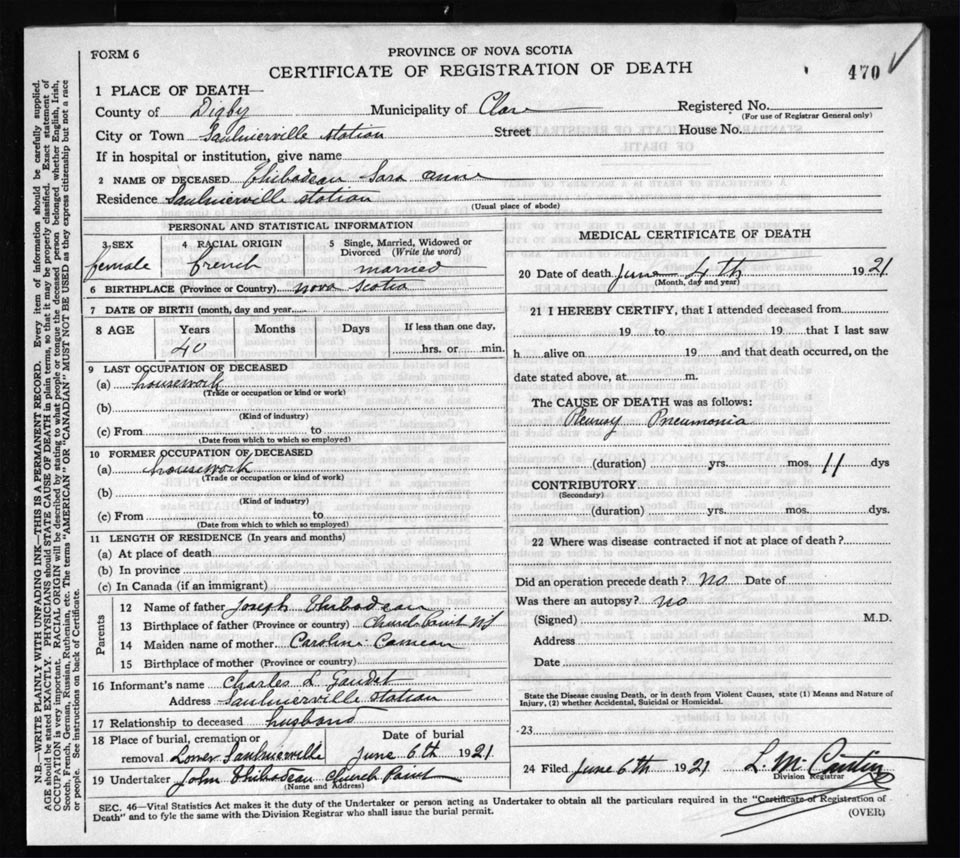 FORM 6
PROVINCE OF NOVA SCOTIA
CERTIFICATE OF REGISTRATION OF DEATH
470
1 PLACE OF DEATH—
County of Digby Municipality of Clare Registered No.
(For use of Registrar General only)
City or Town Saulnierville Station Street House No.
If in hospital or institution, give name
2 NAME OF DECEASED Thibodeau Sara Anne
Residence Saulnierville Station
(Usual place of abode)
PERSONAL AND STATISTICAL INFORMATION
3 SEX
female
4 RACIAL ORIGIN
french
5 Single, Married, Widowed or Divorced (Write the word)
married
6 BIRTHPLACE (Province or Country) Nova Scotia
7 DATE OF BIRTH (month, day and year)
8 AGE Years Months Days If less than one day,
40 hrs. or min.
9 LAST OCCUPATION OF DECEASED
(a) housework
(Trade or occupation or kind of work)
(b)
(Kind of industry)
(c) From to
(Date from which to which so employed)
10 FORMER OCCUPATION OF DECEASED
(a) housework
(Trade or occupation or kind of work)
(b)
(Kind of industry)
(c) From to
(Date from which to which so employed)
11 LENGTH OF RESIDENCE (In years and months)
(a) At place of death
(b) In province
(c) In Canada (if an immigrant)
Parents
12 Name of father Joseph Thibodeau
13 Birthplace of father (Province or country) Church Point NS
14 Maiden name of mother Caroline Comeau
15 Birthplace of mother (Province or country)
16 Informant's name Charles L Gaudet
Address Saulnierville Station
17 Relationship to deceased husband
18 Place of burial, cremation or removal Lower Saulnierville
Date of burial June 6th 1921
19 Undertaker John Thibodeau Church Point
(Name and Address)
MEDICAL CERTIFICATE OF DEATH
20 Date of death June 4th 1921
(Month, day and year)
21 I HEREBY CERTIFY, that I attended deceased from
19 to 19 that I last saw
h alive on 19 and that death occurred, on the
date stated above, at m.
The CAUSE OF DEATH was as follows:
Pleurisy Pneumonia
(duration) yrs. mos. 11 dys
CONTRIBUTORY
(Secondary)
(duration) yrs. mos. dys.
22 Where was disease contracted if not at place of death?
Did an operation precede death? no Date of
Was there an autopsy? no
(Signed) M.D.
Address
Date
State the Disease causing Death, or in death from Violent Causes, state (1) Means and Nature of
Injury, (2) whether Accidental, Suicidal or Homicidal.
23
24 Filed June 6th 1921
Division Registrar
SEC. 46—Vital Statistics Act makes it the duty of the Undertaker or person acting as Undertaker to obtain all the particulars required in the "Certificate of Registration of
Death" and to fyle the same with the Division Registrar who shall issue the burial permit.
(OVER)
N.B.—WRITE PLAINLY WITH UNFADING INK—THIS IS A PERMANENT RECORD. Every item of information should be carefully supplied.
AGE should be stated EXACTLY. PHYSICIANS should STATE CAUSE OF DEATH in plain terms, so that it may be properly classified. Exact statement of
OCCUPATION is very important. RACIAL ORIGIN will be described by stating to what people or tongue the deceased person belonged whether English, Irish,
Scotch, French, German, Russian, Ruthenian, etc. The terms "AMERICAN" OR "CANADIAN" MUST NOT BE USED as they express citizenship but not a race
or people. See instructions on back of Certificate.